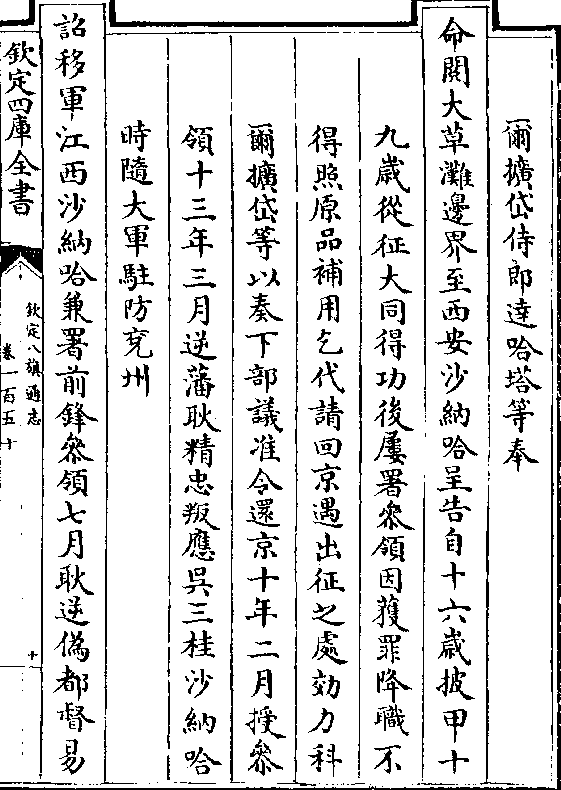 爾擴岱侍郎達哈塔等奉
命閱大草灘邊界至西安沙納哈呈告自十六歲披甲十
九歲從征大同得功後屢署叅領因獲罪降職不
得照原品補用乞代請回京遇出征之處効力科
爾擴岱等以奏下部議准令還京十年二月授叅
領十三年三月逆藩耿精忠叛應吳三桂沙納哈
時隨大軍駐防兗州
詔移軍江西沙納哈兼署前鋒叅領七月耿逆偽都督易
欽定四庫全書
欽定八旗通志
卷一百五十
十